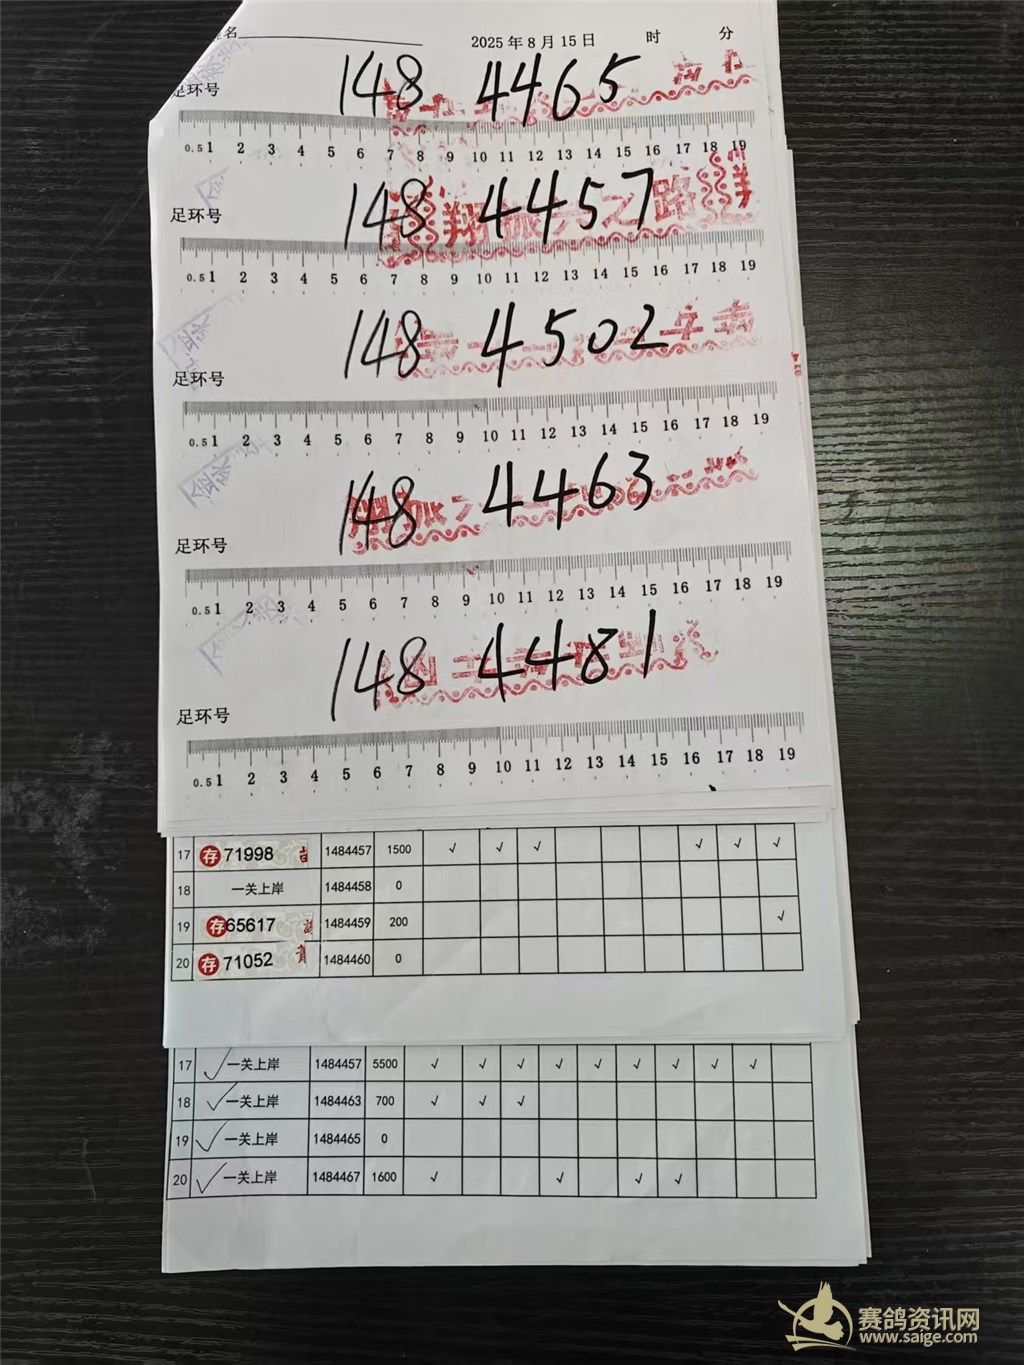 名
2025年8月15日 时 分
足环号 148 4465
0.5 1 2 3 4 5 6 7 8 9 10 11 12 13 14 15 16 17 18 19
足环号 148 4457
翔 之路
0.5 1 2 3 4 5 6 7 8 9 10 11 12 13 14 15 16 17 18 19
足环号 148 4502
0.5 1 2 3 4 5 6 7 8 9 10 11 12 13 14 15 16 17 18 19
足环号 148 4463
0.5 1 2 3 4 5 6 7 8 9 10 11 12 13 14 15 16 17 18 19
足环号 148 4481
0.5 1 2 3 4 5 6 7 8 9 10 11 12 13 14 15 16 17 18 19
17 存 71998 1484457 1500 √ √ √ √ √ √
18 一关上岸 1484458 0
19 存 65617 1484459 200 √
20 存 71052 1484460 0
17 √ 一关上岸 1484457 5500 √ √ √ √ √ √ √ √ √
18 √ 一关上岸 1484463 700 √ √ √
19 √ 一关上岸 1484465 0
20 √ 一关上岸 1484467 1600 √ √ √ √
赛鸽资讯网
www.saige.com